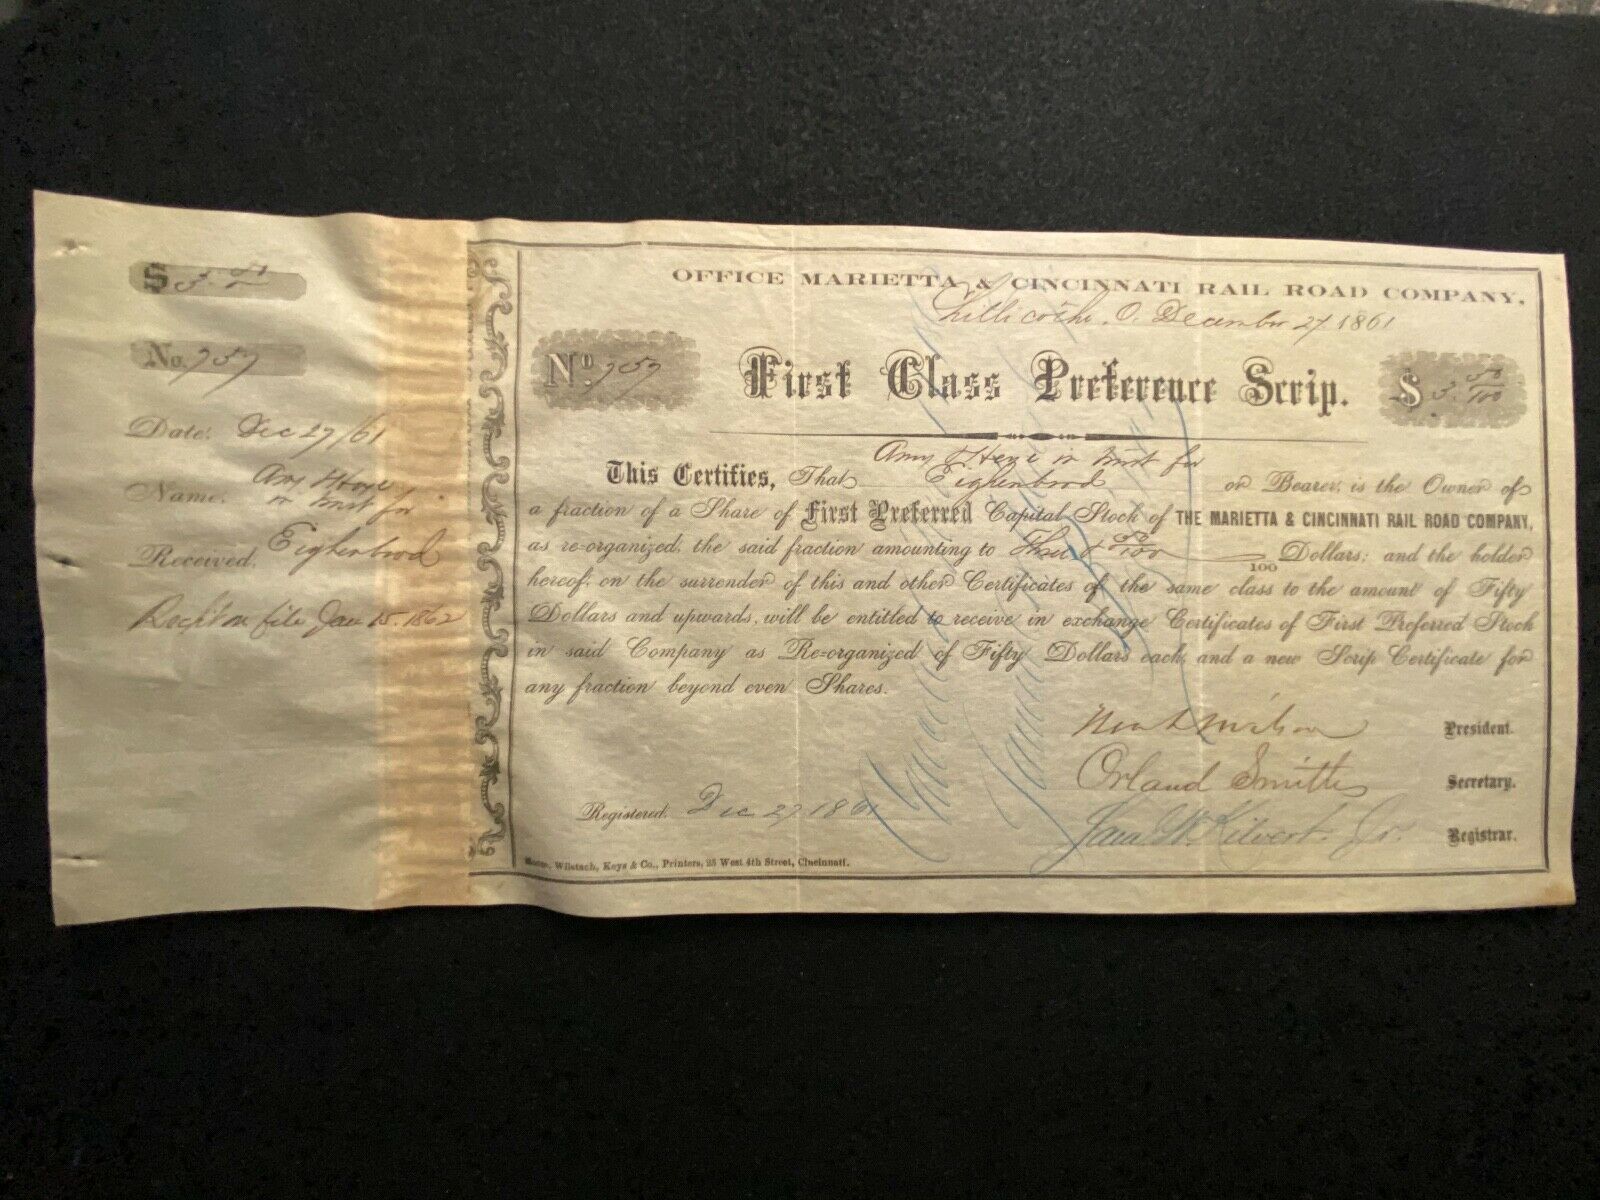 $ 3.50
No. 757
Date. Dec 27/61
Name. Amy
in trust for
Received. Eighenbrod
Recpt on file Jan 15. 1862
OFFICE MARIETTA & CINCINNATI RAIL ROAD COMPANY,
Chillicothe, O. December 27 1861
No. 757 First Class Preference Scrip. $ 3 50/100
Amy in trust for
This Certifies, That Eighenbrod or Bearer, is the Owner of
a fraction of a Share of First Preferred Capital Stock of THE MARIETTA & CINCINNATI RAIL ROAD COMPANY,
as re-organized, the said fraction amounting to Three & 50/100 /100 Dollars; and the holder
hereof, on the surrender of this and other Certificates of the same class to the amount of Fifty
Dollars and upwards, will be entitled to receive in exchange Certificates of First Preferred Stock
in said Company as Re-organized of Fifty Dollars each, and a new Scrip Certificate for
any fraction beyond even Shares.
Wilson President.
Orland Smith Secretary.
W. Kilvert. Jr. Registrar.
Registered. Dec 27 1861
Moore, Wilstach, Keys & Co., Printers, 25 West 4th Street, Cincinnati.
Cancelled